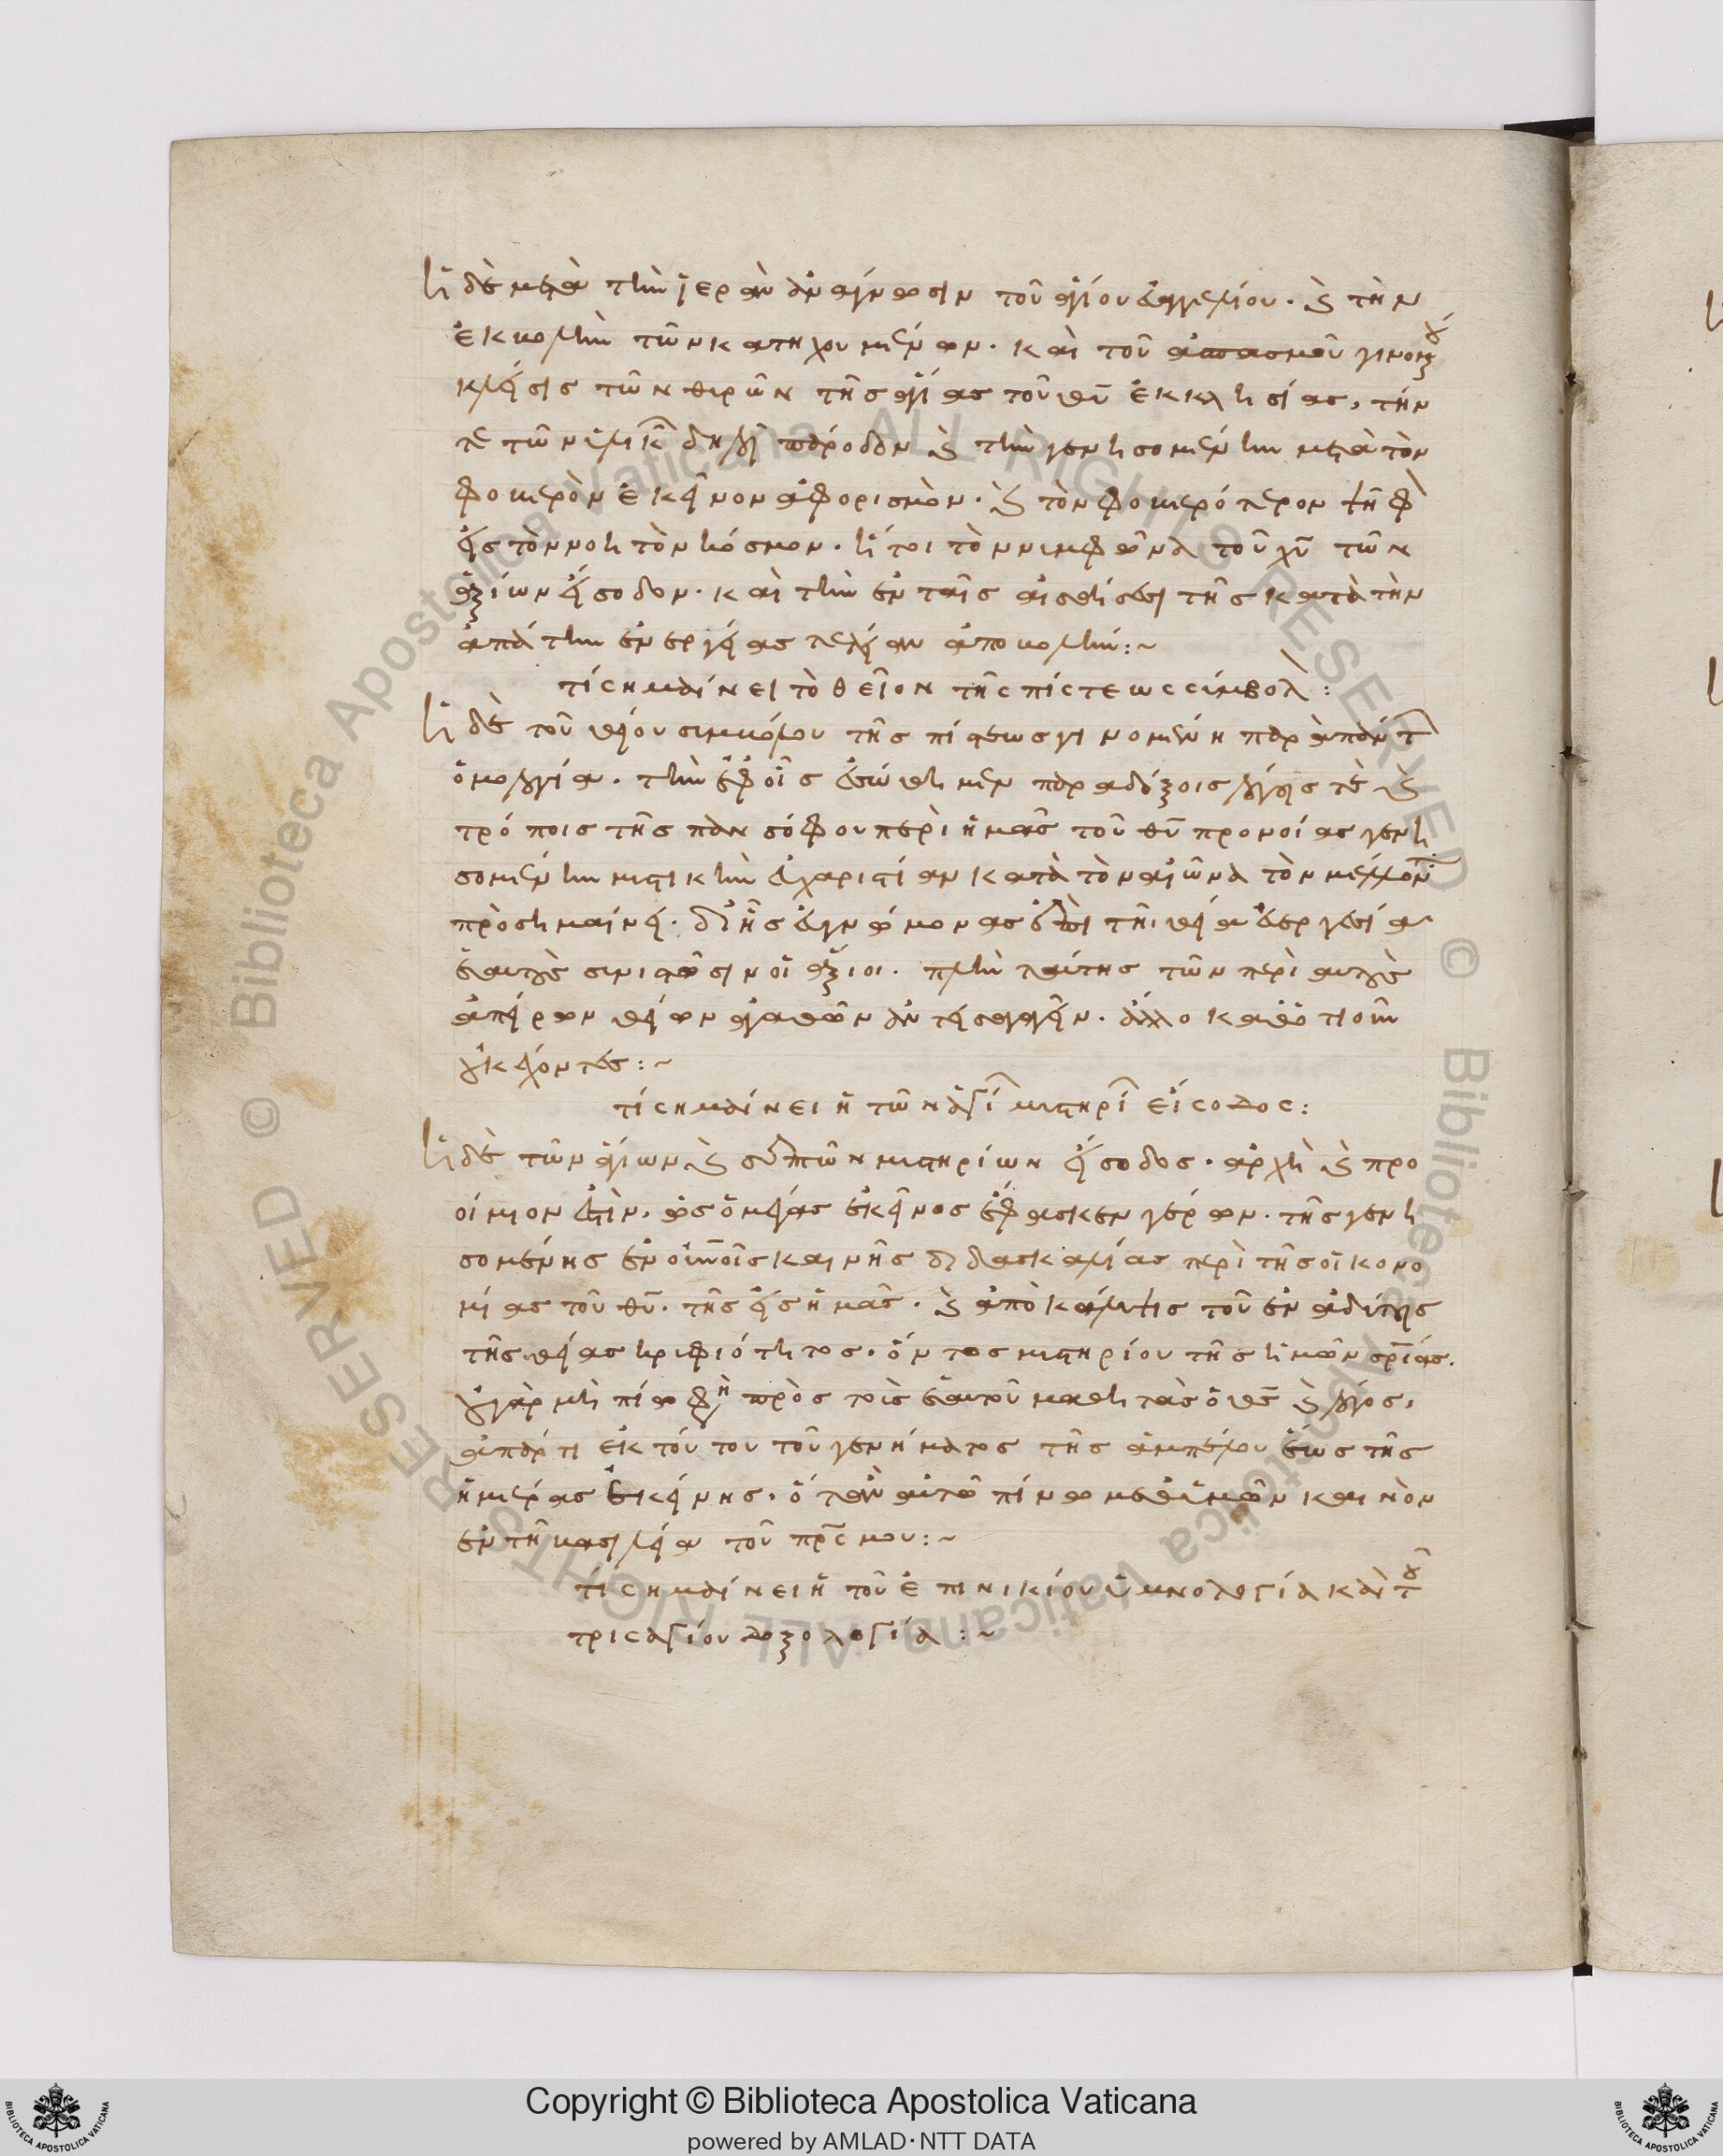 Ἡ δὲ μετὰ τὴν ἱερὰν ἀνάγνωσιν τοῦ ἁγίου εὐαγγελίου· καὶ τὴν
ἐκβολὴν τῶν κατηχουμένων· καὶ τοῦ ἀσπασμοῦ
κλείσις τῶν θυρῶν τῆς ἁγίας τοῦ θῦ ἐκκλησίας, τήν
τε τῶν ὑλικῶν δηλοῖ πάροδον καὶ τὴν γενησομένην μετὰ τὸν
φοβερὸν ἐκεῖνον ἀφορισμὸν· καὶ τὸν φοβερότερον ψῆφον
εἰς τὸν νοητὸν κόσμον· ἤτοι τὸν νυμφῶνα τοῦ χῦ τῶν
ἀξίων εἴσοδον· καὶ τὴν ἐν ταῖς αἰσθήσεσι τῆς κατὰ τὴν
ἀπάτην ἐνεργείας τελείαν ἀποβολήν:~
τί σημαίνει τὸ θεῖον τῆς πίστεως σύμβολ:
Ἡ δὲ τοῦ θείου συμβόλου τῆς πίστεως γινομένη παρὰ πάντ
ὁμολογία· τὴν ἐφ' οἷς ἐσώθημεν παραδόξοις λόγοις τὲ καὶ
τρόποις τῆς πανσόφου περὶ ἡμᾶς τοῦ θῦ προνοίας γενη
σομένην μυστικὴν εὐχαριστίαν κατὰ τὸν αἰῶνα τὸν μέλλοντ
προσημαίνει· δι' ἧς εὐγνώμονας ἐπὶ τῆ θεία εὐεργεσία
ἑαυτοὺς συνιστῶσιν οἱ ἄξιοι· πλὴν ταύτης τῶν περὶ αὐτοὺς
ἀπείρων θείων ἀγαθῶν ἀντεισαγαγεῖν· ἄλλο καθ' ὁτιοῦν
οὐκ ἔχοντες:~
τί σημαίνει ἡ τῶν ἁγί μυστηρί εἴσοδος:
Ἡ δὲ τῶν ἁγίων καὶ σεπτῶν μυστηρίων εἴσοδος· ἀρχὴ καὶ προ
οίμιόν ἐστιν, ὡς ὁ μέγας ἐκεῖνος ἔφασκεν γέρων· τῆς γενη
σομένης ἐν οὐνοῖς καινῆς διδασκαλίας περὶ τῆς οἰκονο
μίας τοῦ θῦ· τῆς εἰς ἡμᾶς· καὶ ἀποκάλυψις τοῦ ἐν ἀδύτοις
τῆς θείας κρυφιότητος· ὄντος μυστηρίου τῆς ἡμῶν σρίας.
οὐ γὰρ μὴ πίω φη πρὸς τοὺς ἑαυτοῦ μαθητὰς ὁ θς καὶ λόγος,
ἀπάρτι ἐκ τούτου τοῦ γενήματος τῆς ἀμπέλου ἕως τῆς
ἡμέρας ἐκείνης· ὅταν αὐτῶ πίνω μεθ' ὑμῶν καινὸν
ἐν τῆ βασιλεία τοῦ πρς μου:~
τί σημαίνει ἡ τοῦ ἐπινικίου ὑμνολογία καὶ τοῦ
τρισαγίου δοξολογία:~
Copyright © Biblioteca Apostolica Vaticana
powered by AMLAD·NTT DATA